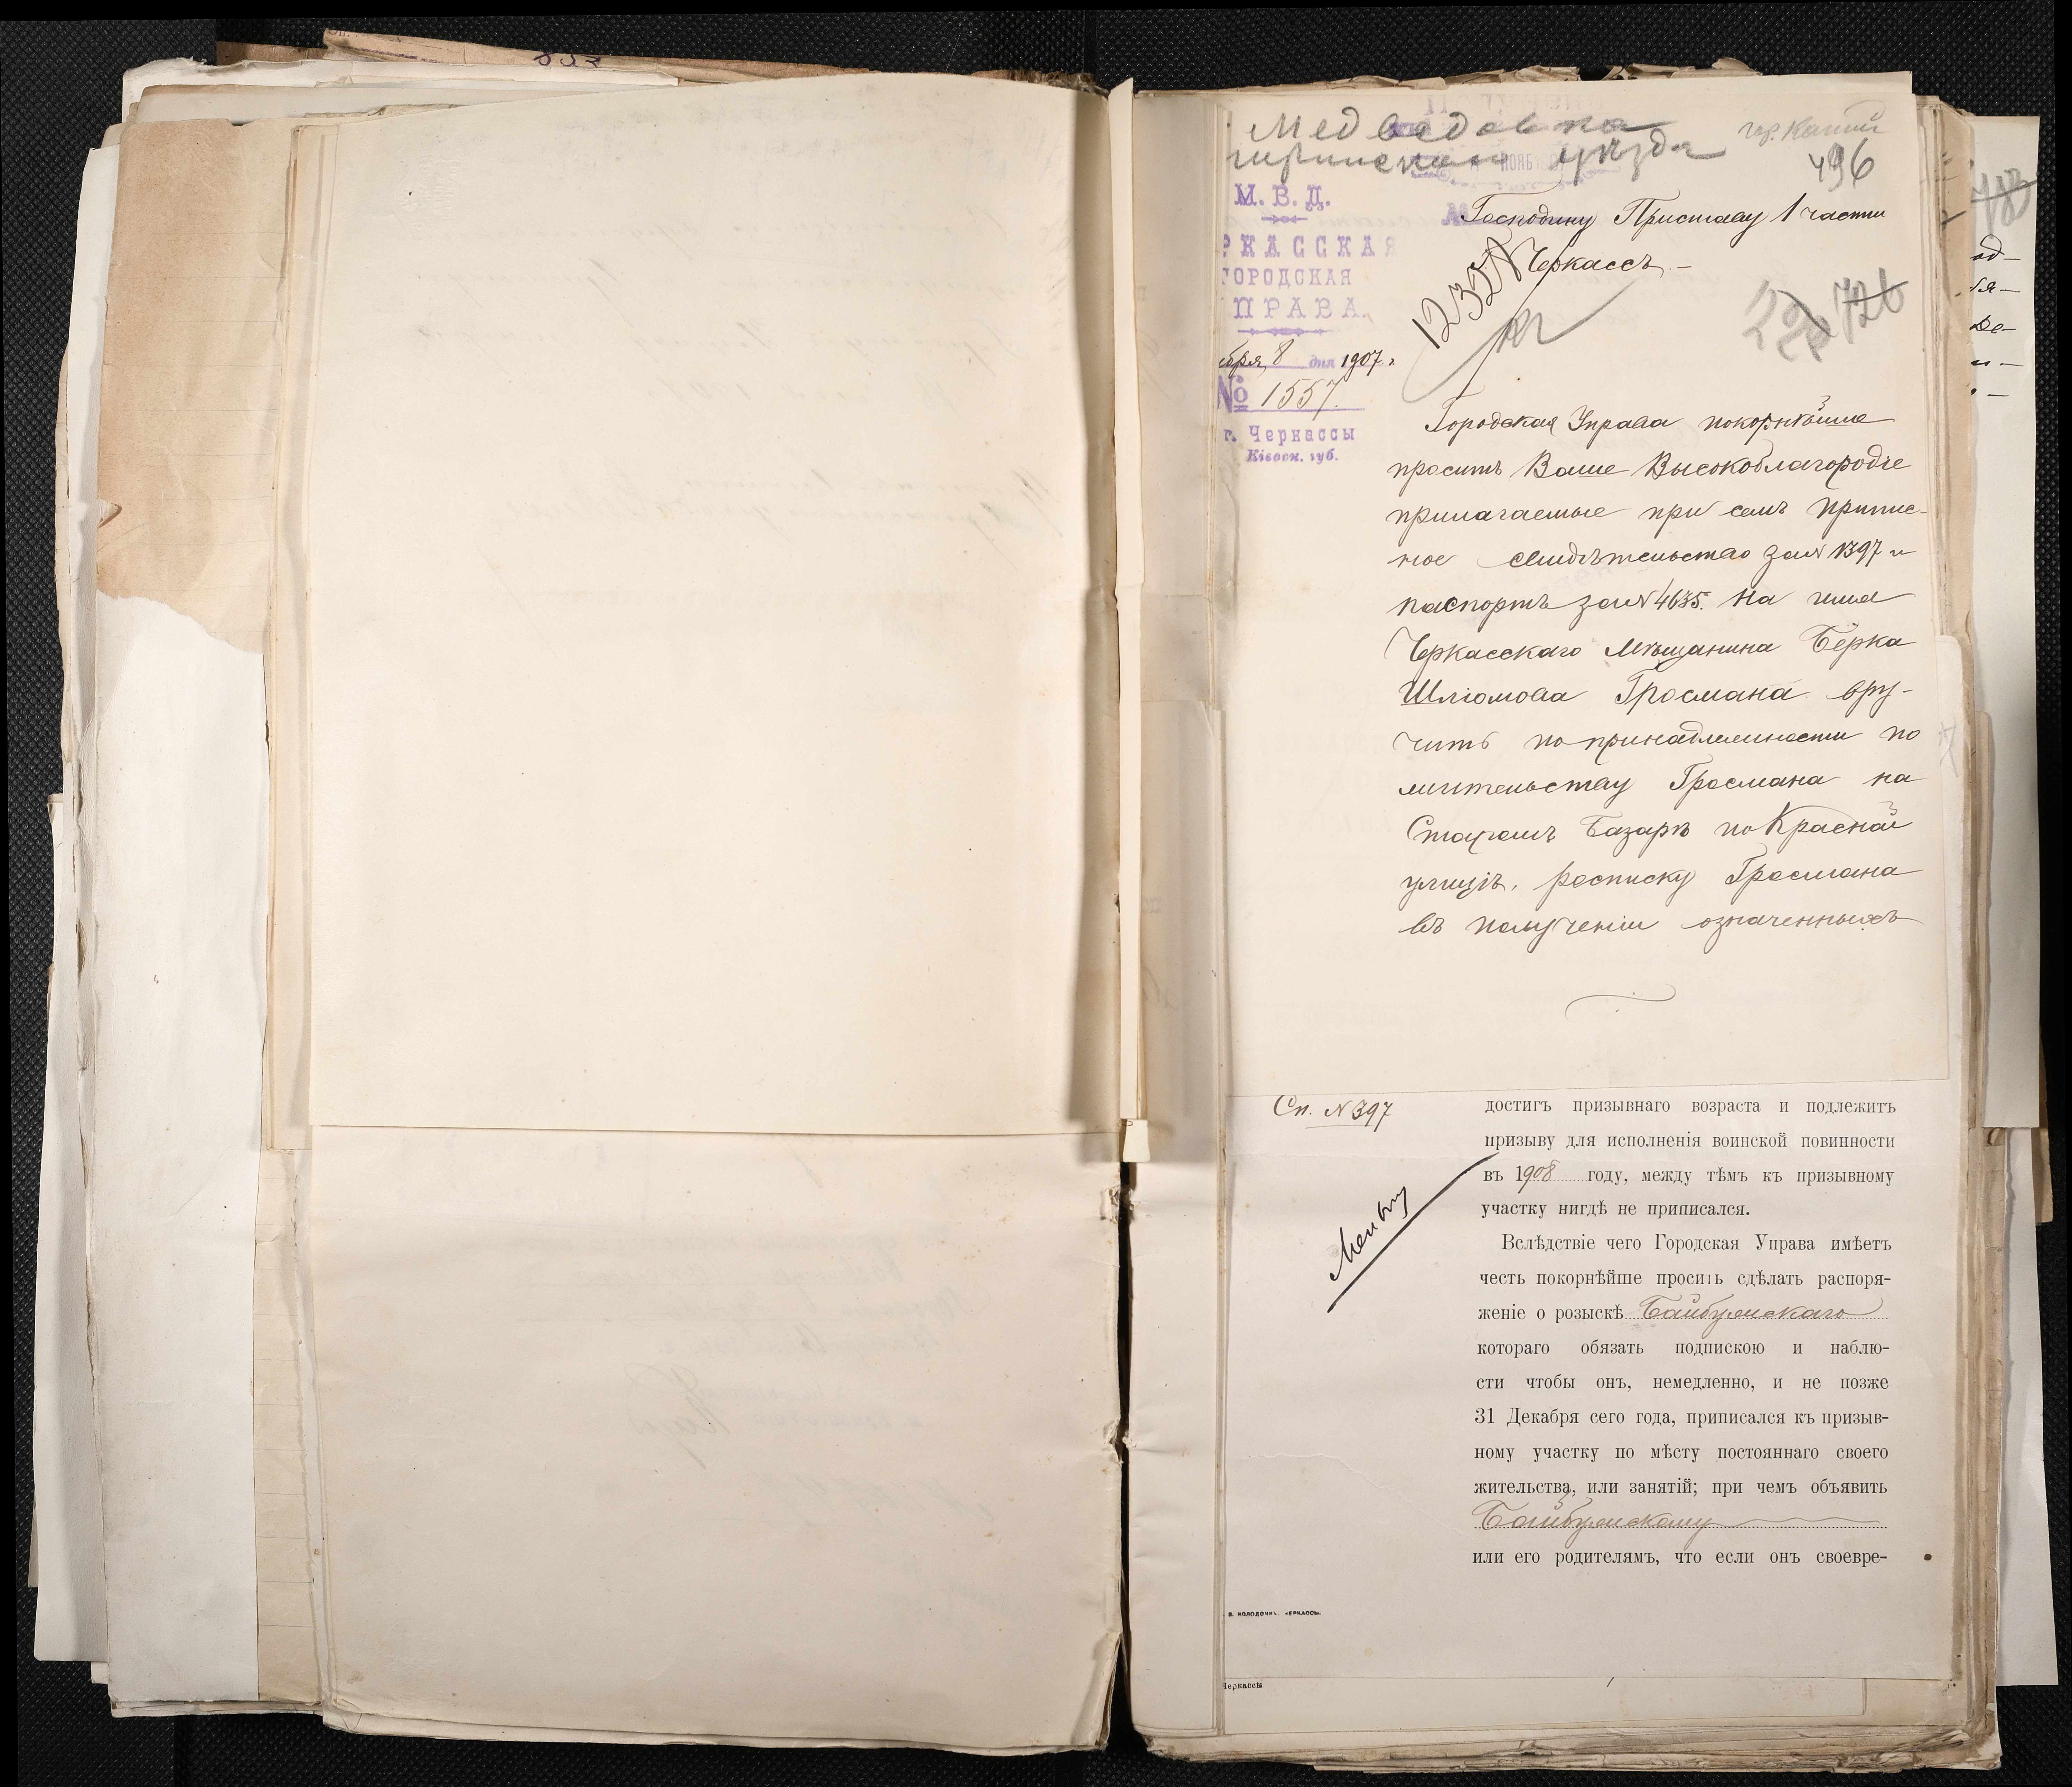 Медведовка
уѣзда
496
М. В. Д.
РКАССКАЯ
ГОРОДСКАЯ
ПРАВА.
ября 8 дня 1907 г
№ 1557.
г. Черкассы
Кіевск. губ.
Господину Приставу 1 части
Черкассъ. –
12327
726
Городская Управа покорнѣйше
проситъ Ваше Высокоблагородіе
прилагаемые при семъ припис-
ное свидѣтельство за № 1397 и
паспортъ за № 4635. на имя
Черкасскаго мѣщанина Берка
Шлiомова Гросмана вру-
чить по принадлежности по
жительству Гросмана на
Старомъ Базарѣ по Красной
улицѣ, росписку Гросмана
въ полученіи означенныхъ
Сп. № 397
достигъ призывнаго возраста и подлежитъ
призыву для исполненія воинской повинности
въ 1908 году, между тѣмъ къ призывному
участку нигдѣ не приписался.
Вслѣдствіе чего Городская Управа имѣетъ
честь покорнѣйше просить сдѣлать распоря-
женіе о розыскѣ Байбузскаго
котораго обязать подпискою и наблю-
сти чтобы онъ, немедленно, и не позже
31 Декабря сего года, приписался къ призыв-
ному участку по мѣсту постояннаго своего
жительства, или занятій; при чемъ объявить
Байбузскому
или его родителямъ, что если онъ своевре-
Черкассы